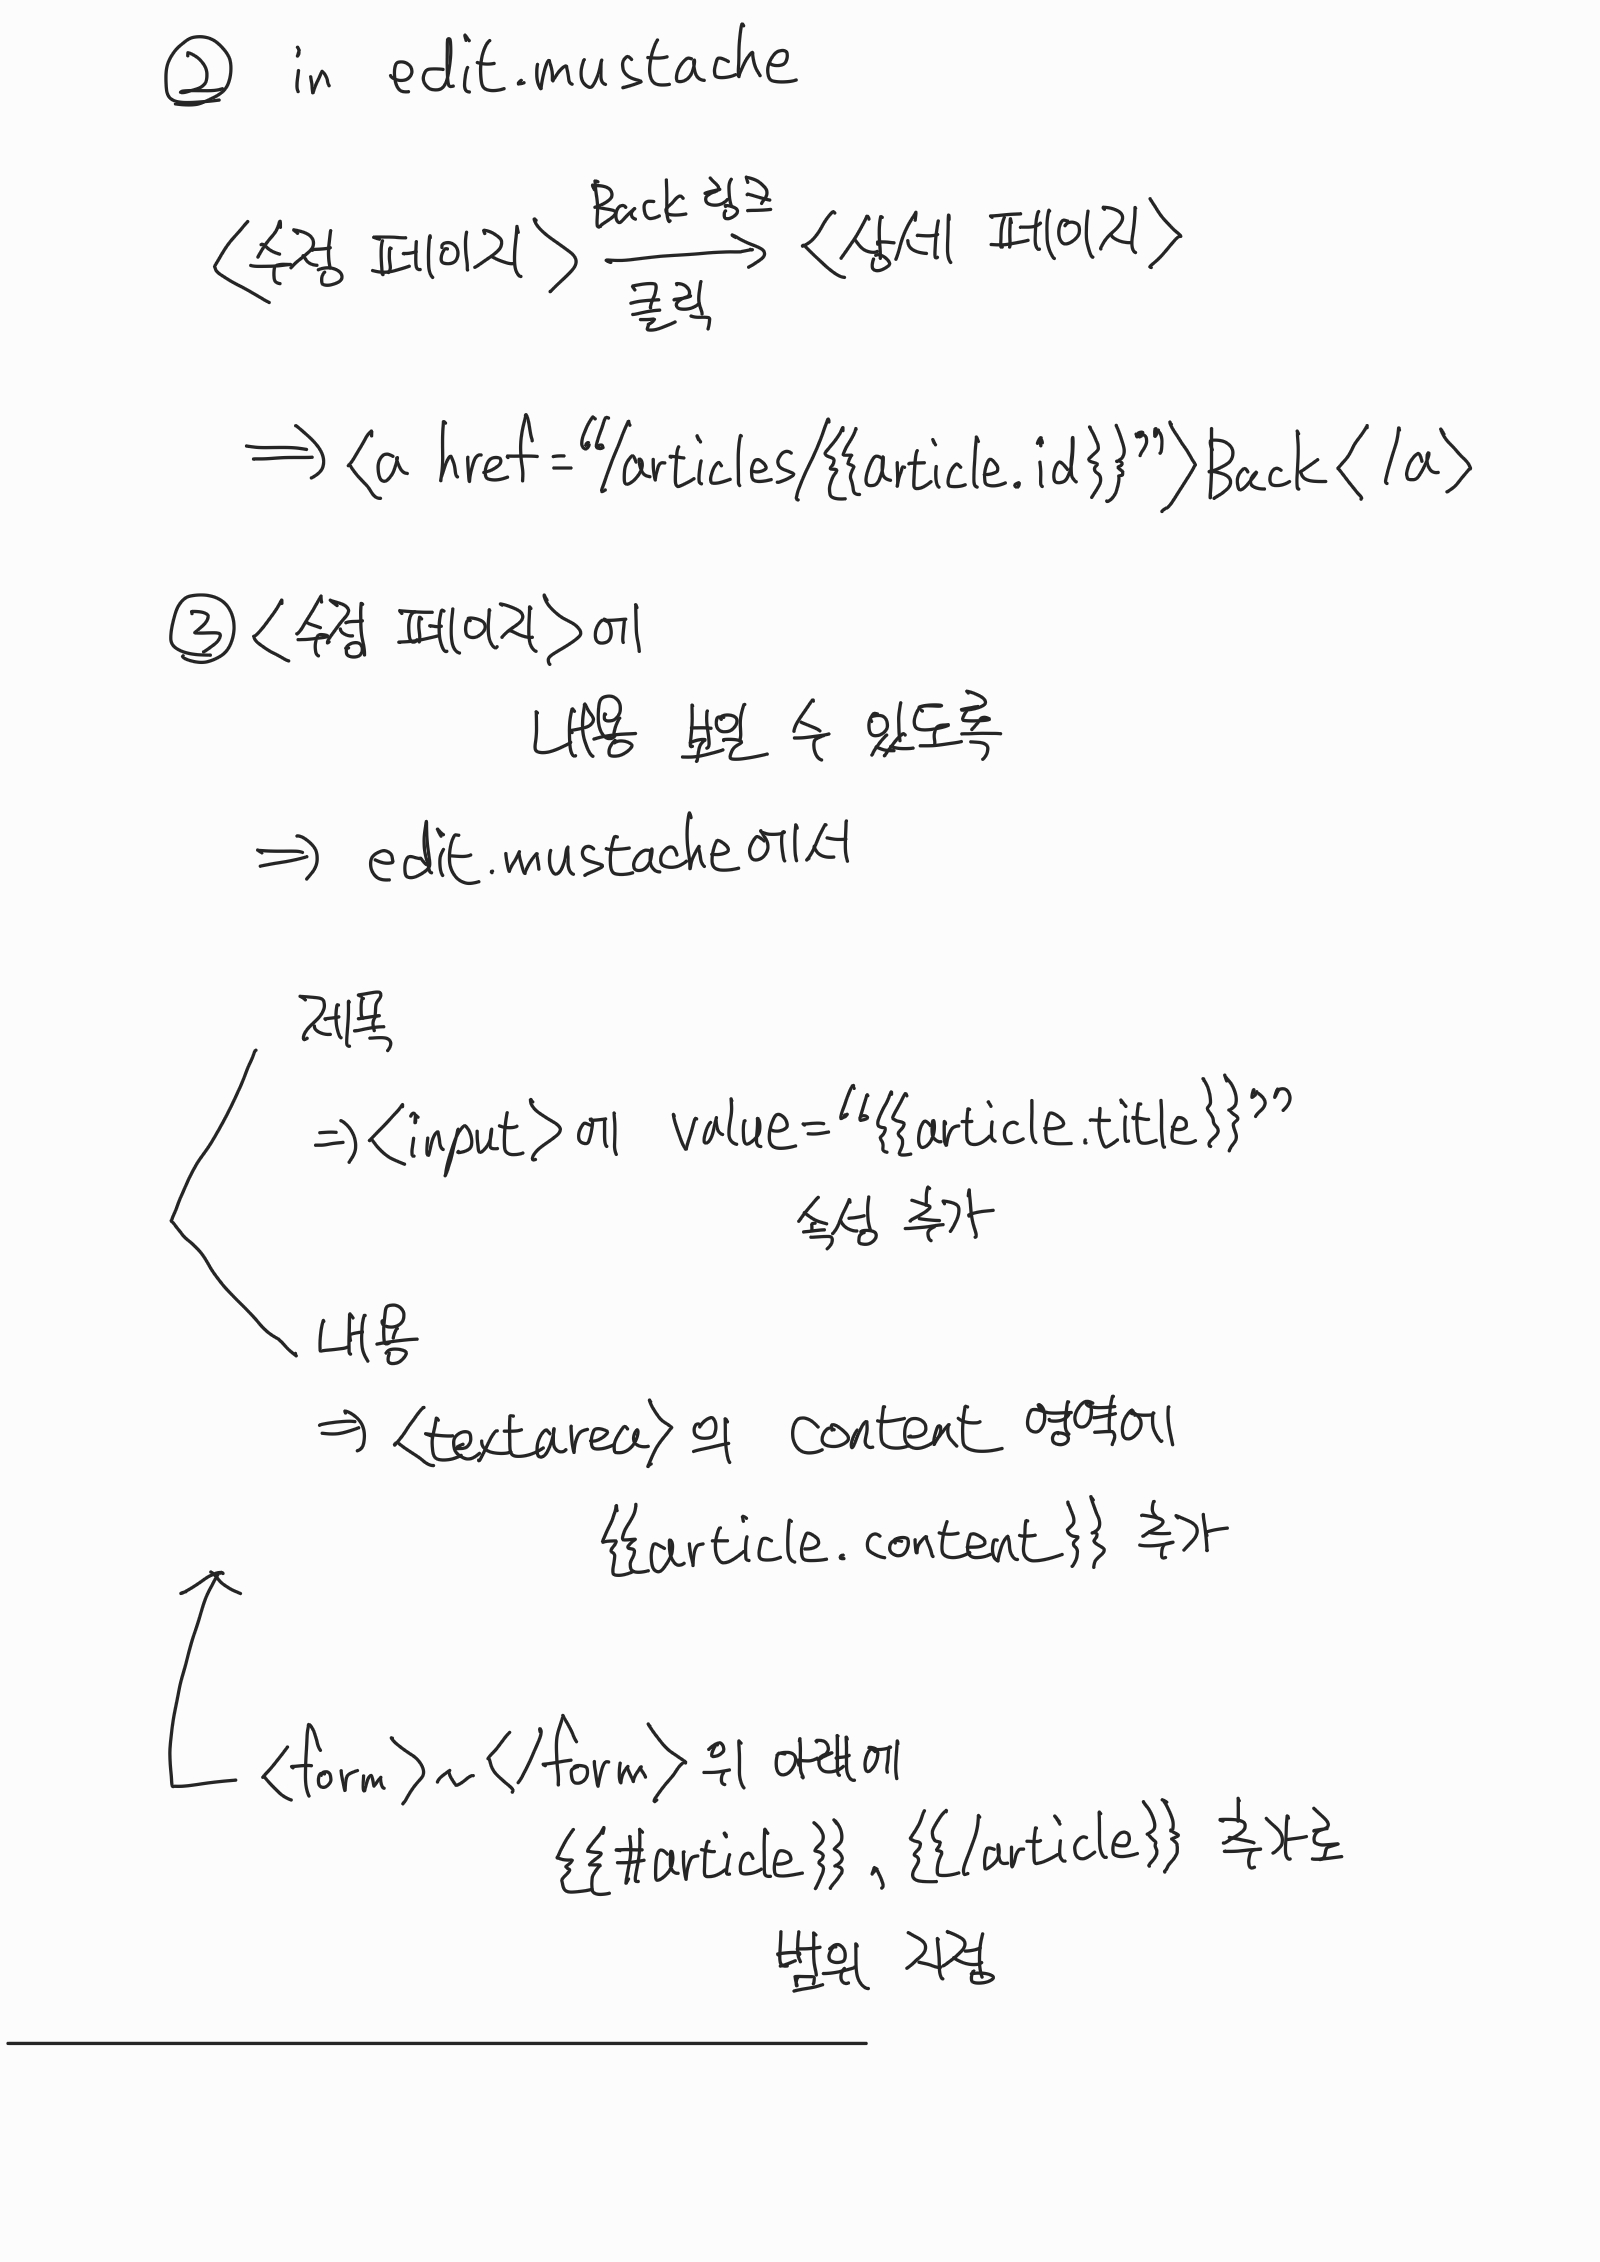 ② in edit.mustache
<수정 페이지> Back 링크 클릭 → <상세 페이지>
⇒ <a href="/articles/{{article.id}}">Back</a>
③ <수정 페이지>에
내용 보일 수 있도록
⇒ edit.mustache에서
제목
⇒ <input>에 value="{{article.title}}"
속성 추가
내용
⇒ <textarea>의 content 영역에
{{article.content}} 추가
<form>~</form>위 아래에
{{#article}}, {{/article}} 추가로
범위 지정